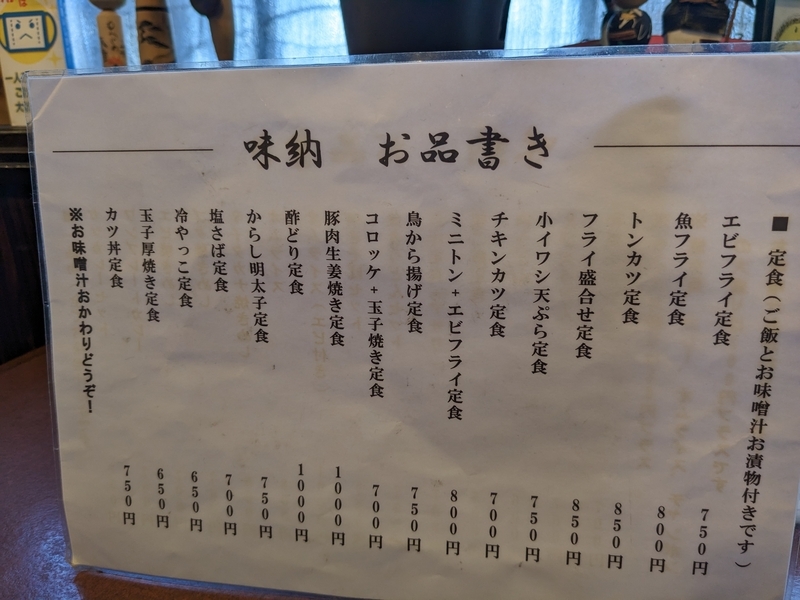 味納 お品書き
■ 定食(ご飯とお味噌汁お漬物付きです)
エビフライ定食 750円
魚フライ定食 800円
トンカツ定食 850円
フライ盛合せ定食 850円
小イワシ天ぷら定食 750円
チキンカツ定食 700円
ミニトン+エビフライ定食 800円
鳥から揚げ定食 750円
コロッケ+玉子焼き定食 700円
豚肉生姜焼き定食 1000円
酢どり定食 1000円
からし明太子定食 750円
塩さば定食 700円
冷やっこ定食 650円
玉子厚焼き定食 650円
カツ丼定食 750円
※お味噌汁おかわりどうぞ!